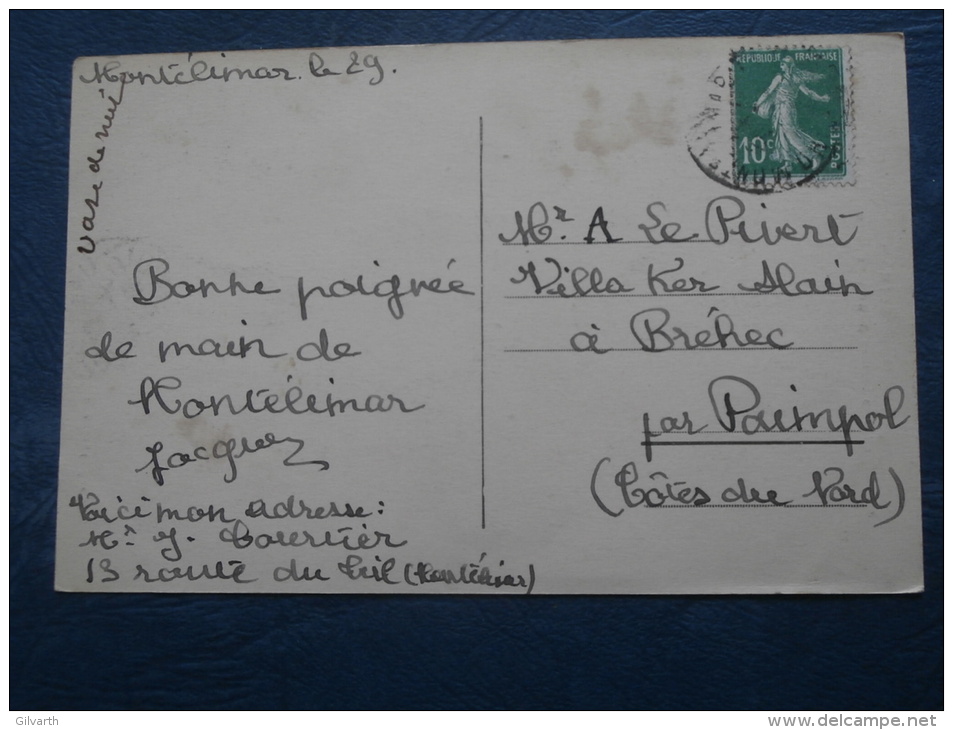 Montélimar. le 29.
vase de nuit
Bonne poignée
de main de
Montélimar
Jacques
Voici mon adresse:
Mr J.
13 route du Teil (Montélimar)
RÉPUBLIQUE FRANÇAISE
10c
POSTES
Mr. A Le Pivert
Villa Ker Alain
à Bréhec
par Paimpol
(Côtes du Nord)
Gilvarth
www.delcampe.net